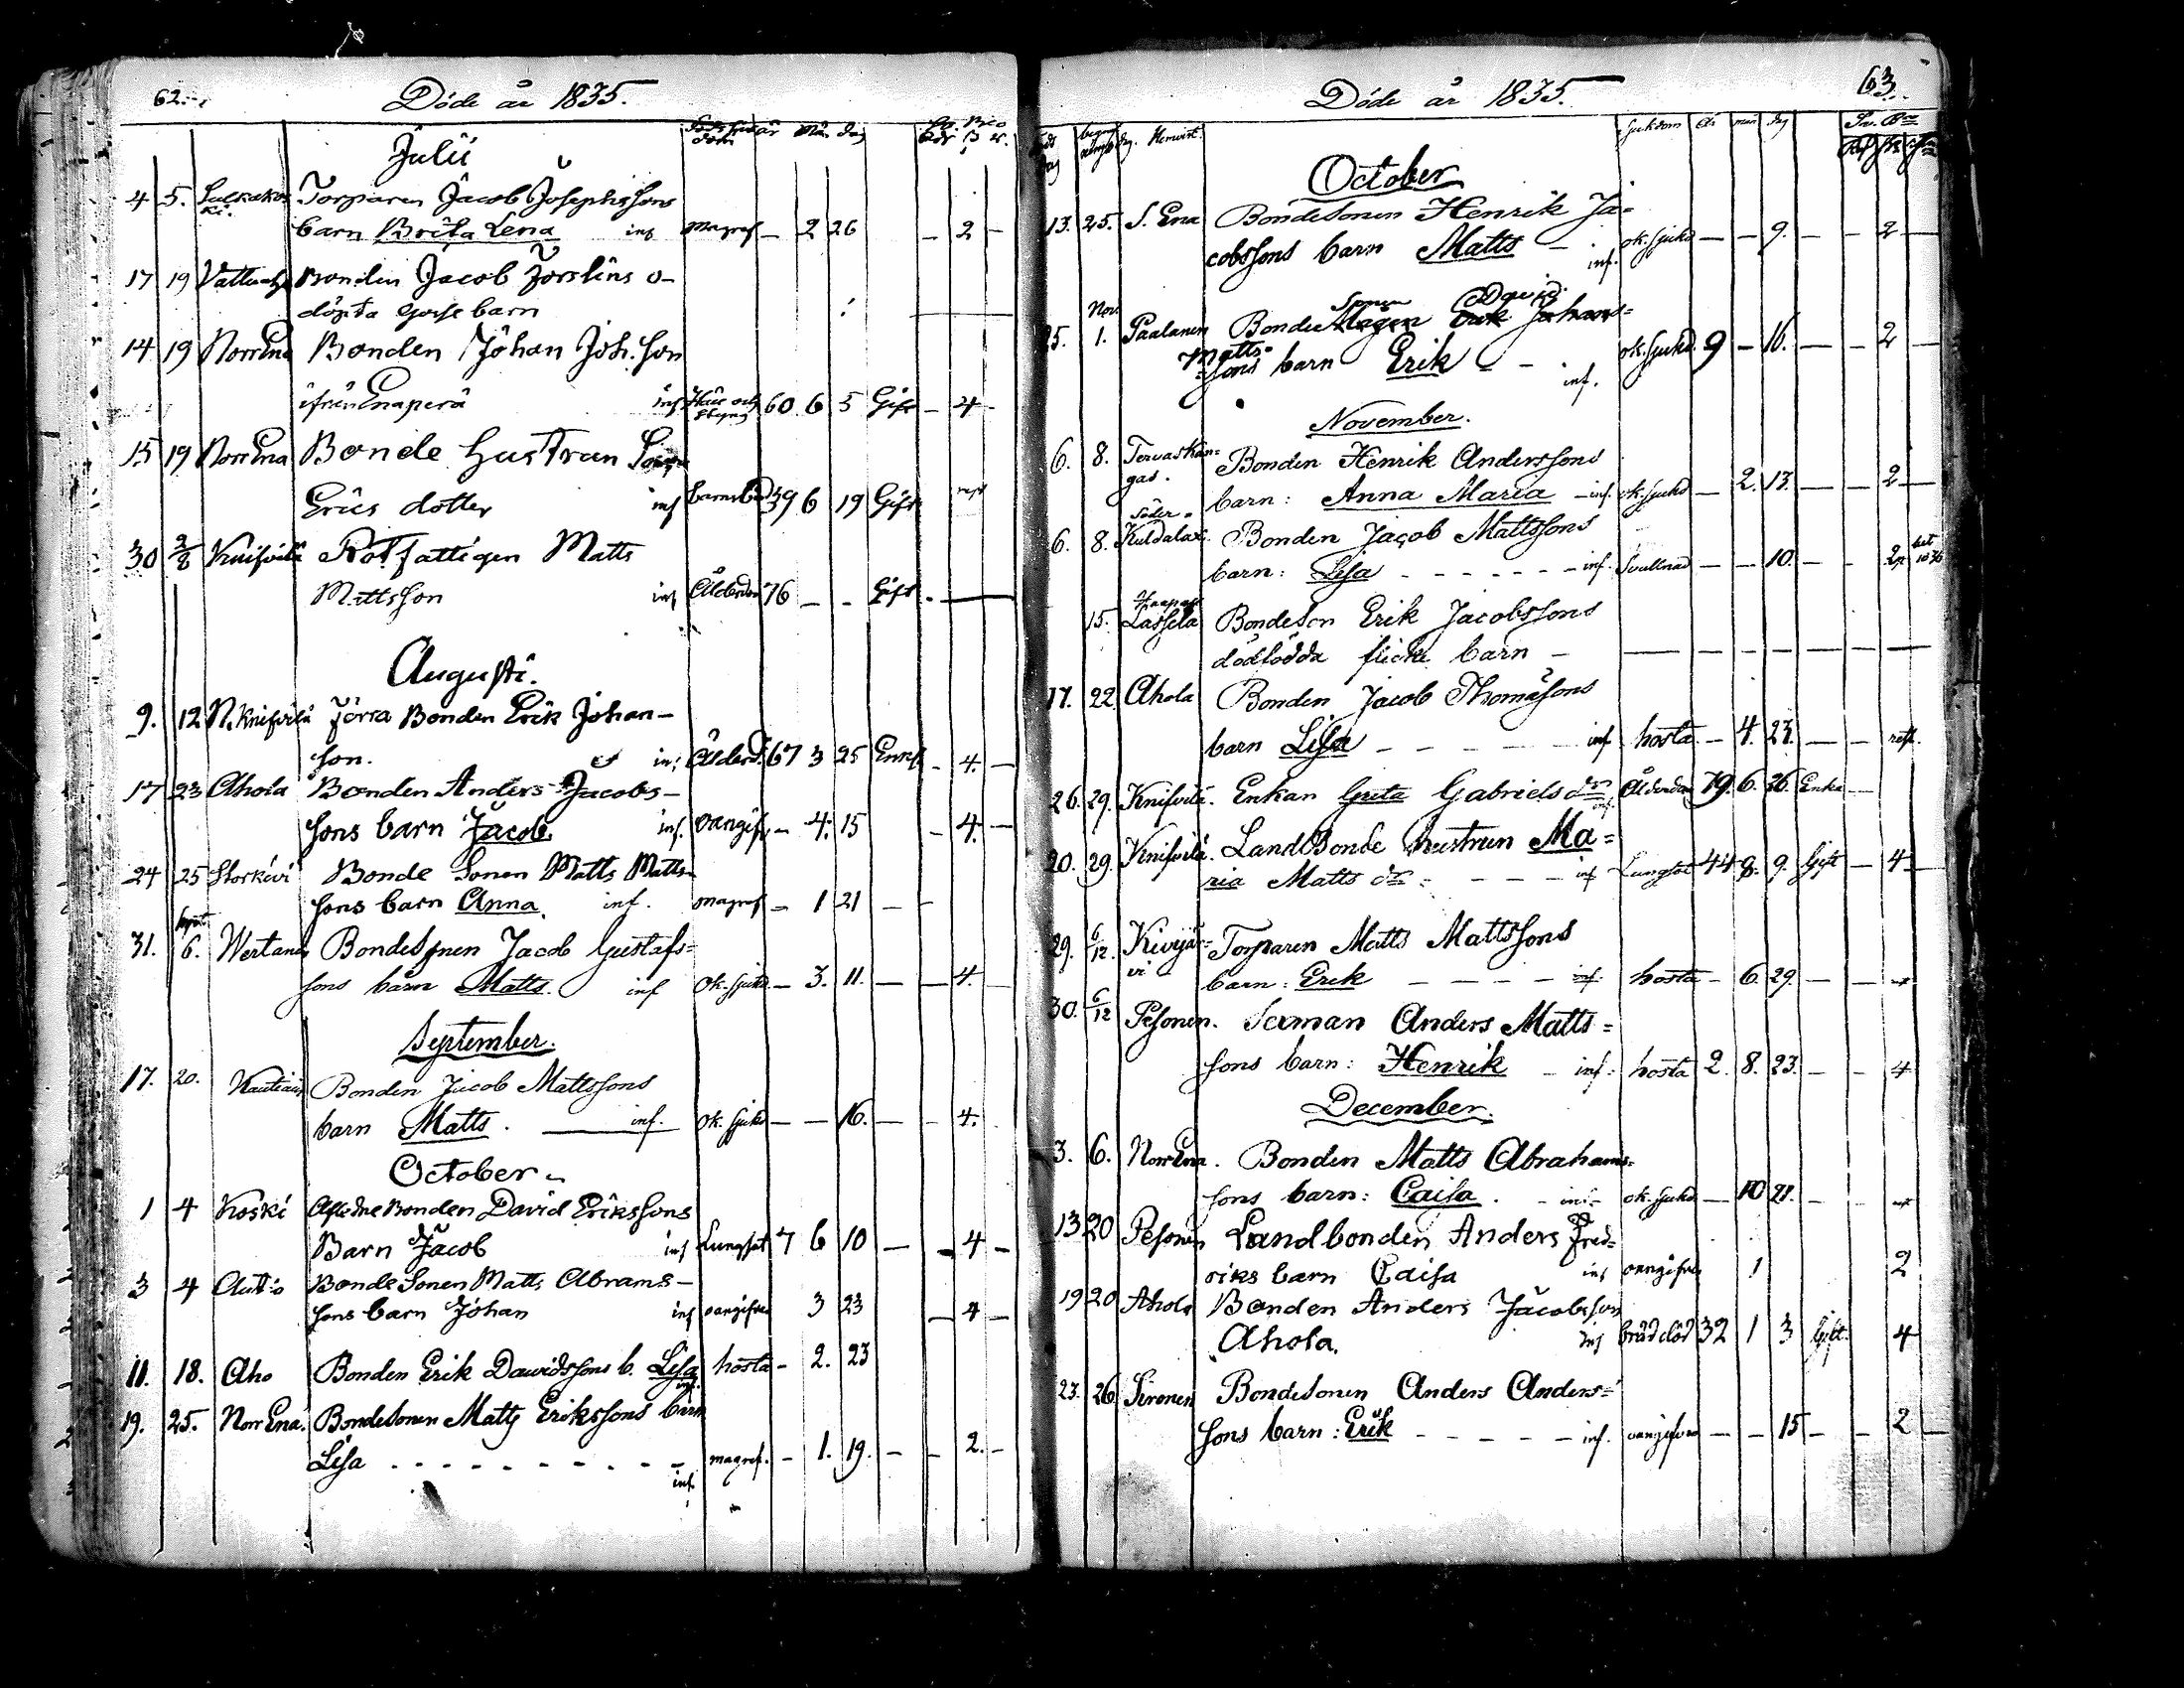 62.
Döde år 1835.
år Mån dag
Julii
4 5. Torparen Jacob Josephssons
barn Brita Lena inf magref – 2 26 – 2 –
17 19 Bonden Jacob Jorslins o-
döpta gosse barn
14 19 Norr Ena Bonden Johan Joh. son
ifrån Enaperä inf 60 6 5 Gift – 4 –
15 19 Norr Ena Bonde hustrun
Erics dotter inf barnsbörd 39 6 19 Gift
30 2/8 Knifvilä Rotfattigen Matts
Mattsson inf Ålderdom 76 – – Gift –
Augusti.
9. 12 N. Knifvilä Förra Bonden Erik Johan-
son. inf Ålderd. 67 3 25 Enkl – 4. –
17 23 Ahola Bonden Anders Jacobs-
sons barn Jacob inf. oangifv – 4. 15 – 4. –
24 25 Storkivi Bonde Sonen Matts Matts-
sons barn Anna. inf. magref – 1 21 – –
Sept
31. 6. Wertanen Bondesonen Jacob Gustafs=
sons barn Matts. inf ok. sjukd – 3. 11. – – 4. –
September.
17. 20. Kautiain Bonden Jacob Mattssons
barn Matts. inf. ok. sjukd – – 16. – – 4.
October
1 4 Koski Aflidne Bonden David Erikssons
Barn Jacob inf Lungsot 7 6 10 – – 4 –
3 4 Autio Bonde Sonen Matts Abrams-
sons barn Johan inf oangifven 3 23 – 4 –
11. 18. Aho Bonden Erik Dawidssons b. Lisa inf. hosta – 2. 23
19. 25. Norr Ena. Bondesonen Matts Erikssons barn
Lisa - - - - - - - - - - inf. magref. – 1. 19. – – 2. –
63.
Döde år 1835.
Hemvist. Sjukdom år mån dag
October
13. 25. S. Ena Bondesonen Henrik Ja=
cobssons barn Matts – inf. ok. sjukd – – 9. – – 2 –
Nov. Sonen David
25. 1. Paalanen Bonde Mågen Erik Johans=
Matts-
sons barn Erik – – inf. ok. sjukd. 9 – 16. – – 2 –
November.
6. 8. Tervaskan=
gas. Bonden Henrik Anderssons
barn: Anna Maria – inf. ok. sjukd – 2. 13. – – 2 –
Söder-
6. 8. Kuldalax. Bonden Jacob Mattssons
barn: Lisa - - - - - - inf. Svullnad – – 10. – – 2
Haapa
15. Lassila Bondeson Erik Jacobssons
dödfödda flicke barn – – – – – – – – –
17. 22 Ahola Bonden Jacob Thomasons
barn Lisa - - - - - inf hosta – 4. 27. – – rest.
26. 29. Knifvilä. Enkan Greta Gabriels dr inf. Ålderdom 79. 6. 26. Enka –
20. 29. Knifvilä. LandBonde hustrun Ma=
ria Matts dr: - - - inf Lungsot 44 8. 9. Gift – 4 –
29. 6/12. Kivijär=
vi Torparen Matts Mattssons
barn: Erik - - - - inf. hosta – 6. 29. – –
30. 6/12 Pesonen. Sexman Anders Matts=
sons barn: Henrik – inf: hosta 2. 8. 23. – – 4
December.
3. 6. Norr Ena. Bonden Matts Abrahams=
sons barn: Caisa. – inf – ok. sjukd – 10 21. – –
13 20 Pesonen Landbonden Anders Fred=
riks barn Caisa inf oangifven 1 2
19 20 Ahola Bonden Anders Jacobsson
Ahola. inf bråd död 32 1 3 Gift. 4
23. 26 Sironen Bondesonen Anders Anders=
sons barn: Erik - - - - - inf. oangifven – – 15 – – 2 –